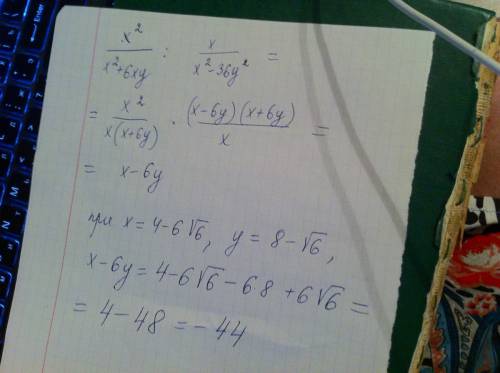 x²/(x²+6xy) : x/(x²-36y²) =
= x²/(x(x+6y)) · (x-6y)(x+6y)/x =
= x-6y
при x = 4-6√6, y = 8-√6,
x-6y = 4-6√6-6·8+6√6 =
= 4-48 = -44
Enter